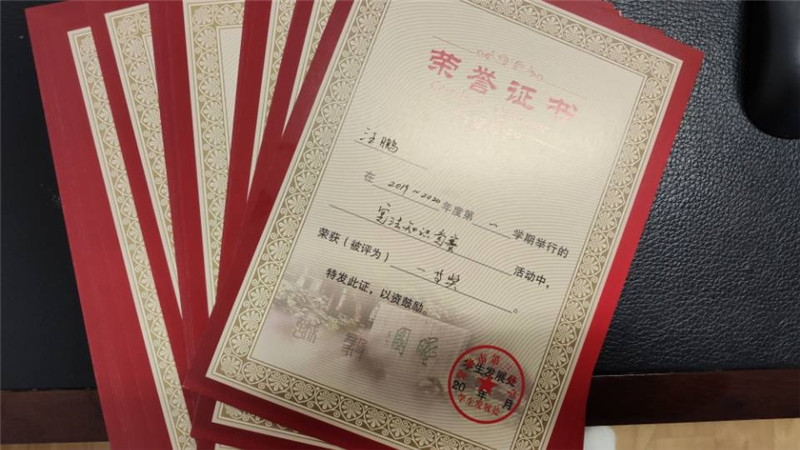 荣誉证书
汪鹏
在 2019~2020 年度第 一 学期举行的
宪法知识竞赛 活动中,
荣获(被评为) 一等奖 。
特发此证,以资鼓励。
学生发展处
20 年 月
学生发展处